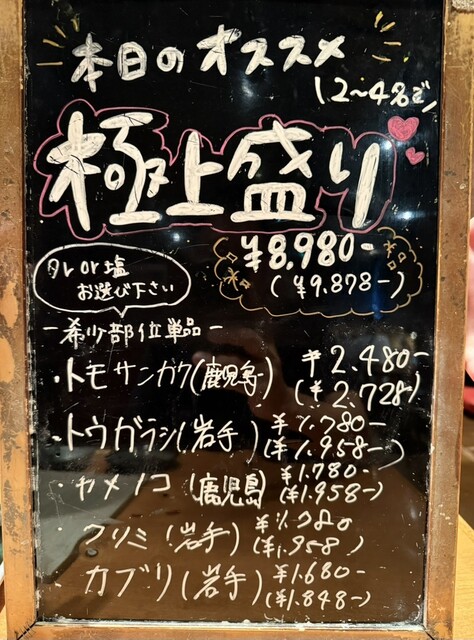 本日のオススメ
(2〜4名で)
極上盛り
¥8,980-
(¥9,878-)
タレor塩
お選び下さい
-希少部位単品-
・トモサンカク(鹿児島) ¥2,480-
(¥2,728-)
・トウガラシ(岩手) ¥1,780-
(¥1,958-)
・カメノコ(鹿児島) ¥1,780-
(¥1,958-)
・クリミ(岩手) ¥1,780
(¥1,958)
・カブリ(岩手) ¥1,680-
(¥1,848-)